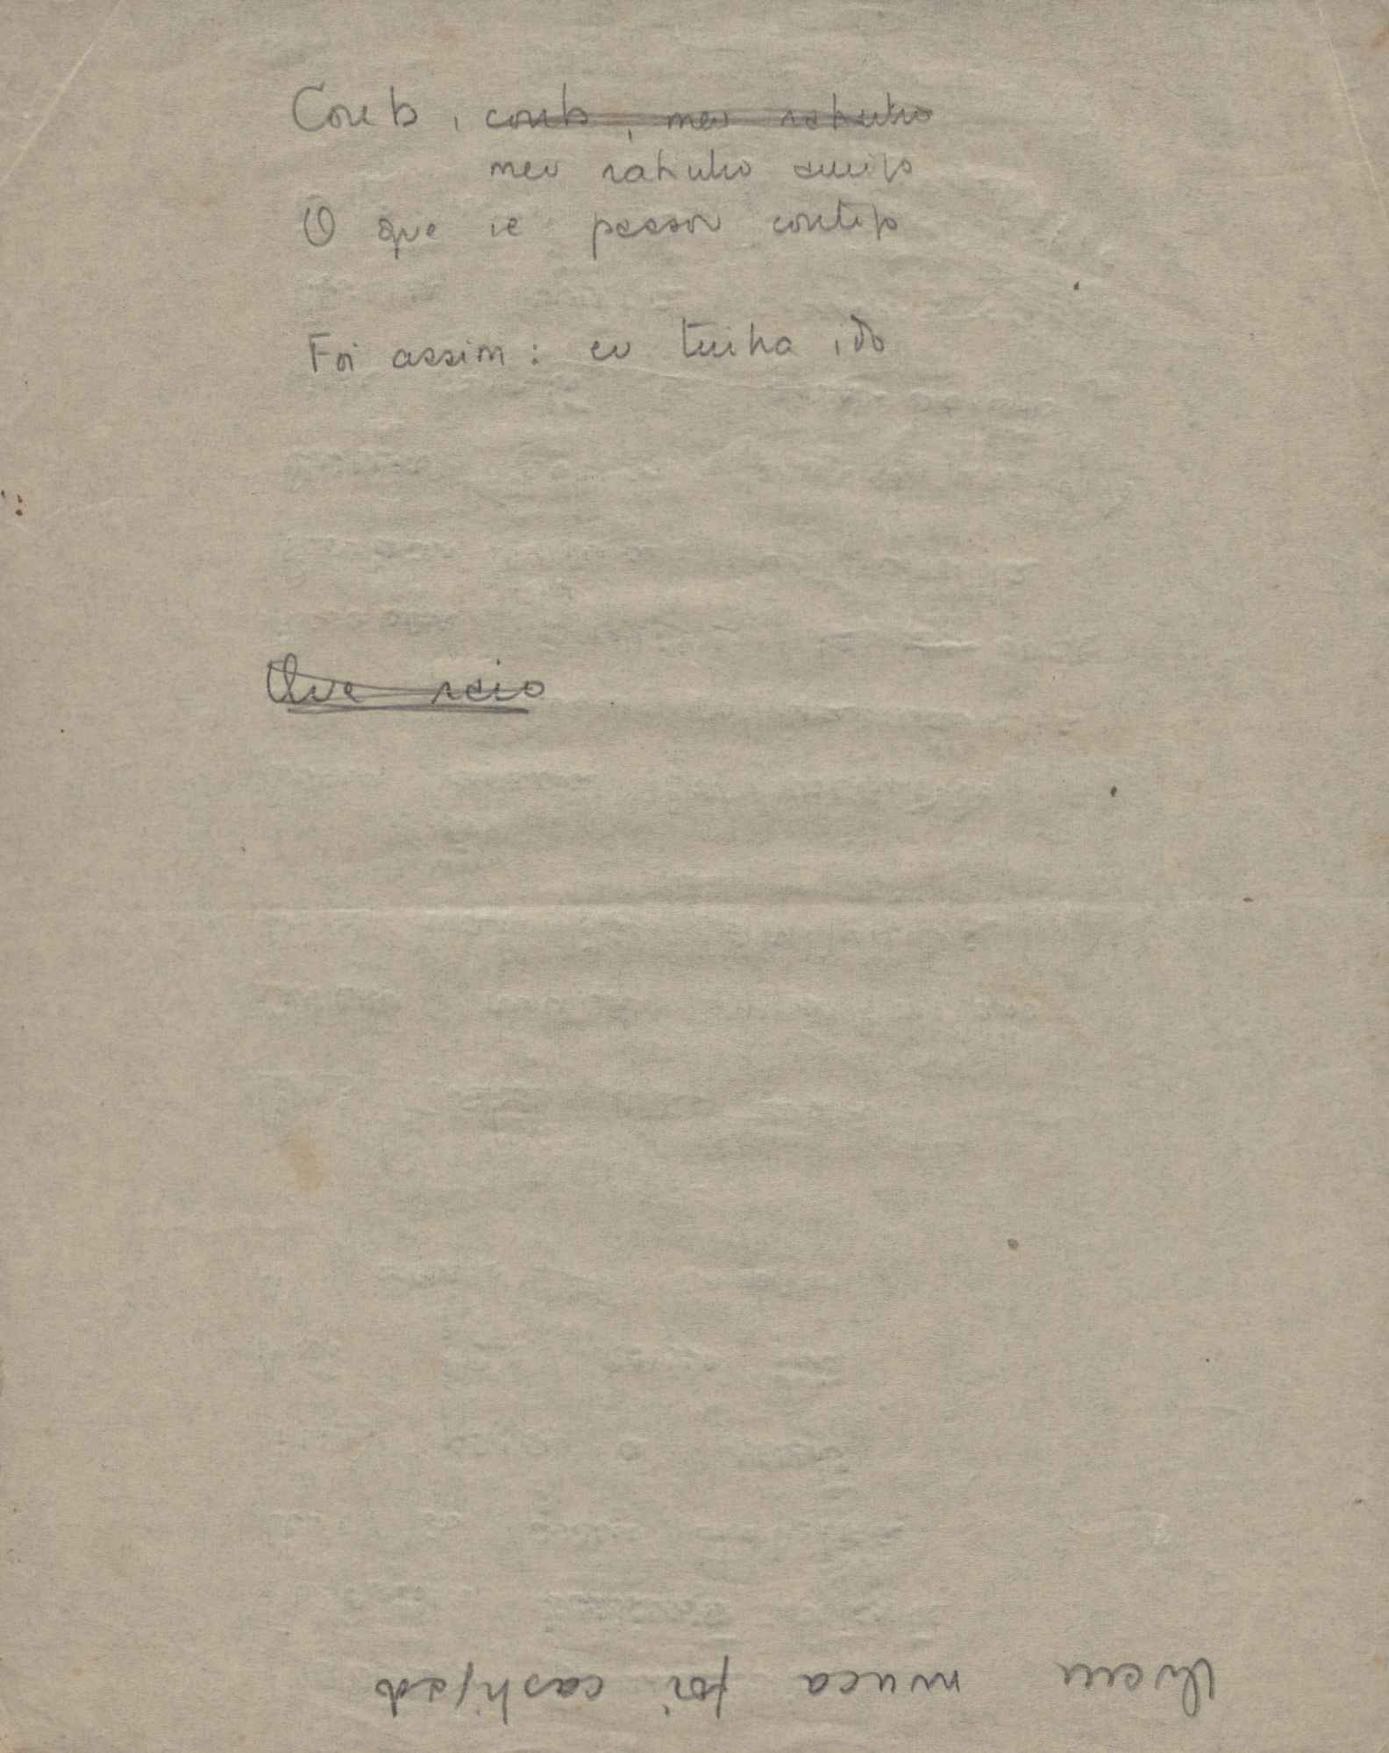 Conta, conta, meu ratinho
meu ratinho amigo
O que se passou contigo
Foi assim: eu tinha ido
Que raio
Quem nunca foi castigado